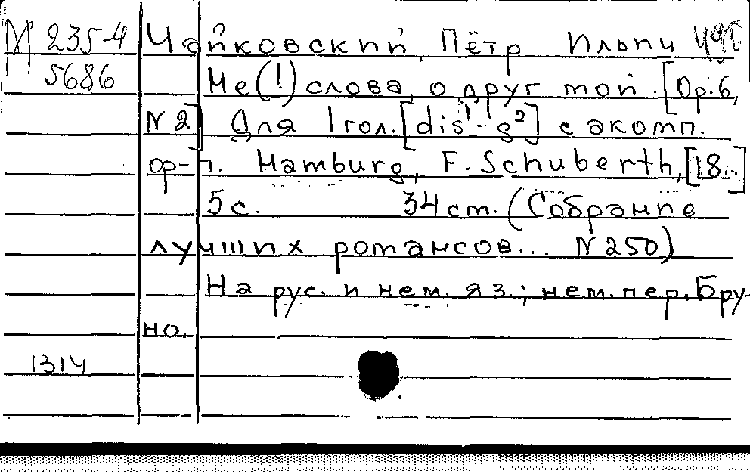 М 235-4 Чайковский, Пётр Ильич
5686 Не(!) слова, о друг мой. [Op. 6,
N 2] Для 1 гол. [dis¹-g²] с акомп.
ф-п. Hamburg, F. Schuberth, [18..]
5 с. 34 cm. (Собрание
лучших романсов... N 250)
На рус. и нем. яз.; нем. пер. Бру-
но.
1314